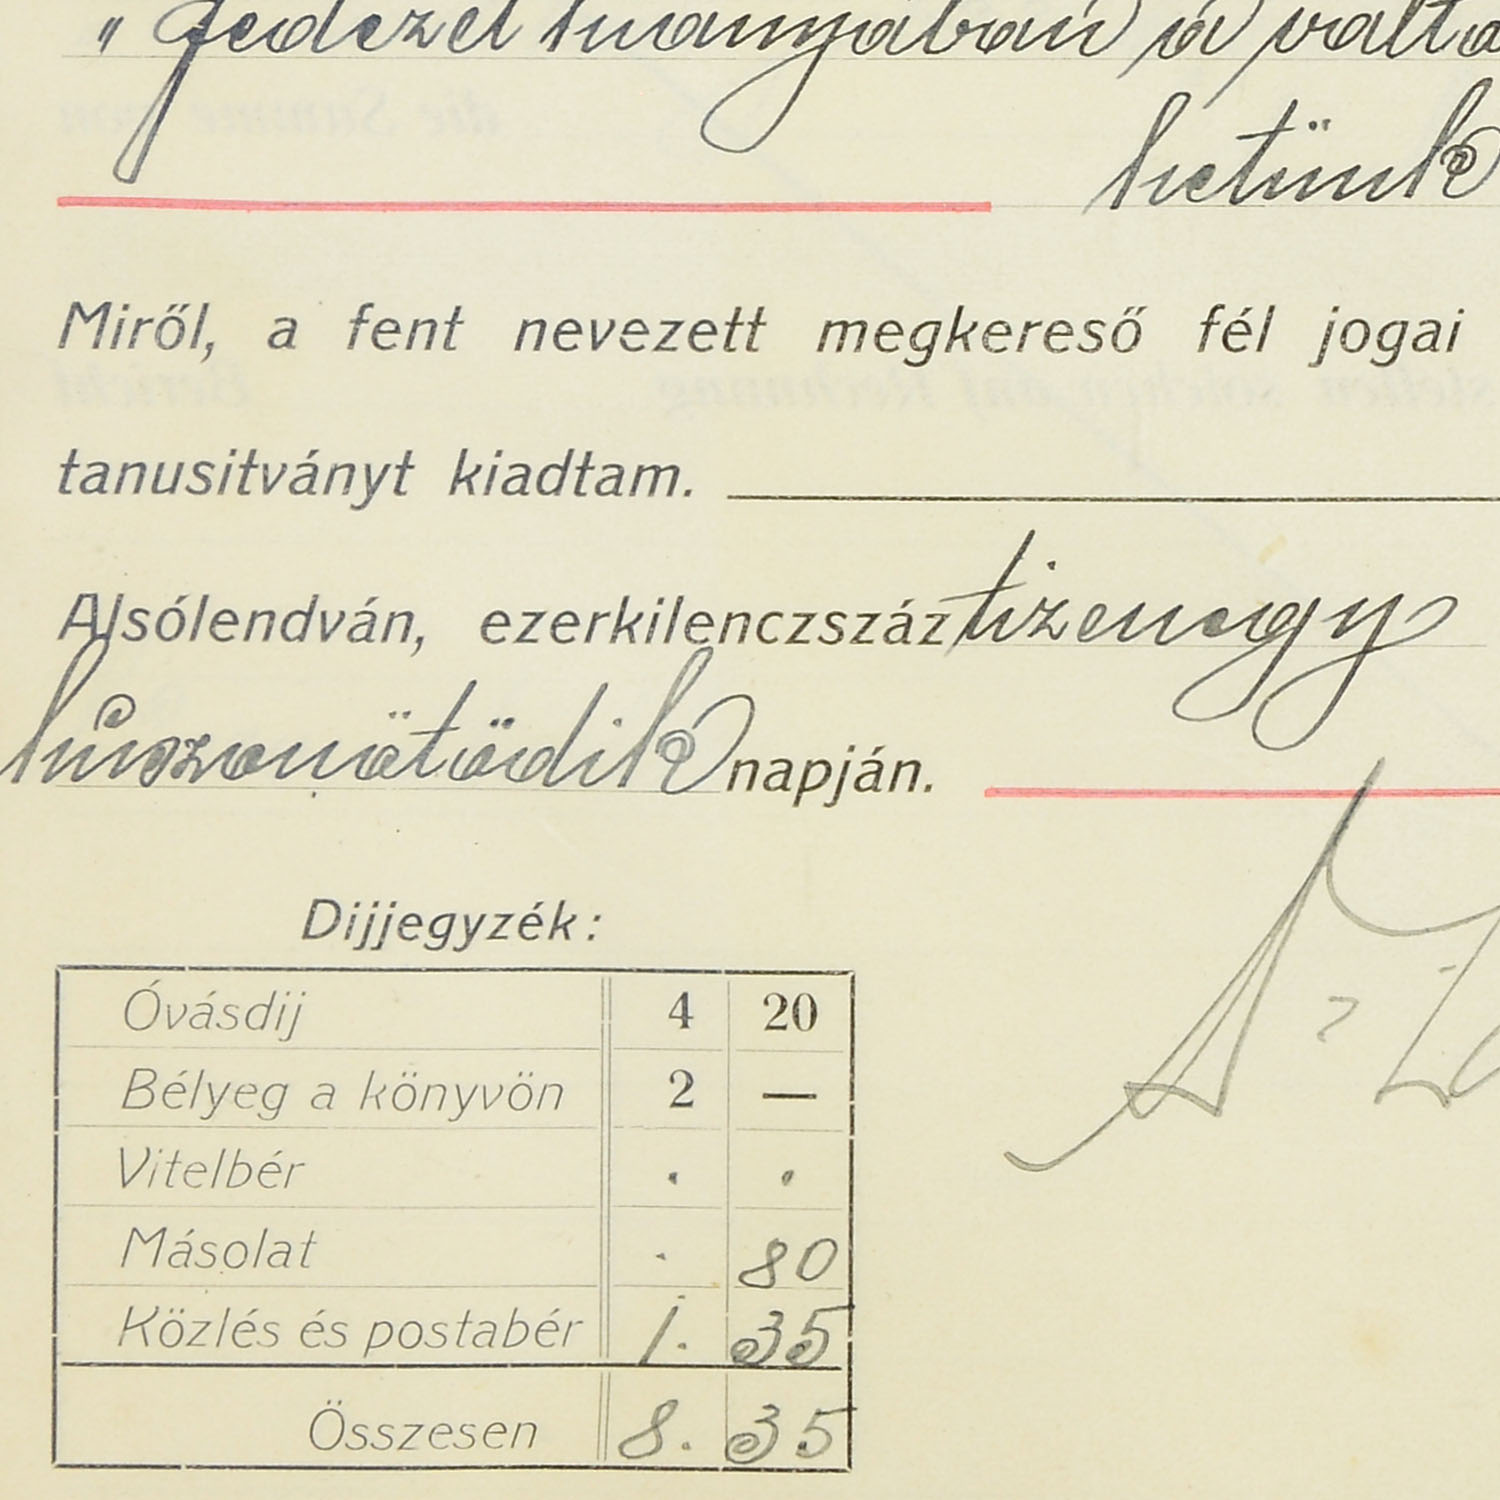 „ fedezet hiányában a válta
hetünk
Miről, a fent nevezett megkereső fél jogai
tanusitványt kiadtam.
Alsólendván, ezerkilenczszáz tizenegy
húszonötödik napján.
Dijjegyzék:
Óvásdij 4 20
Bélyeg a könyvön 2 —
Vitelbér . .
Másolat . 80
Közlés és postabér 1. 35
Összesen 8. 35